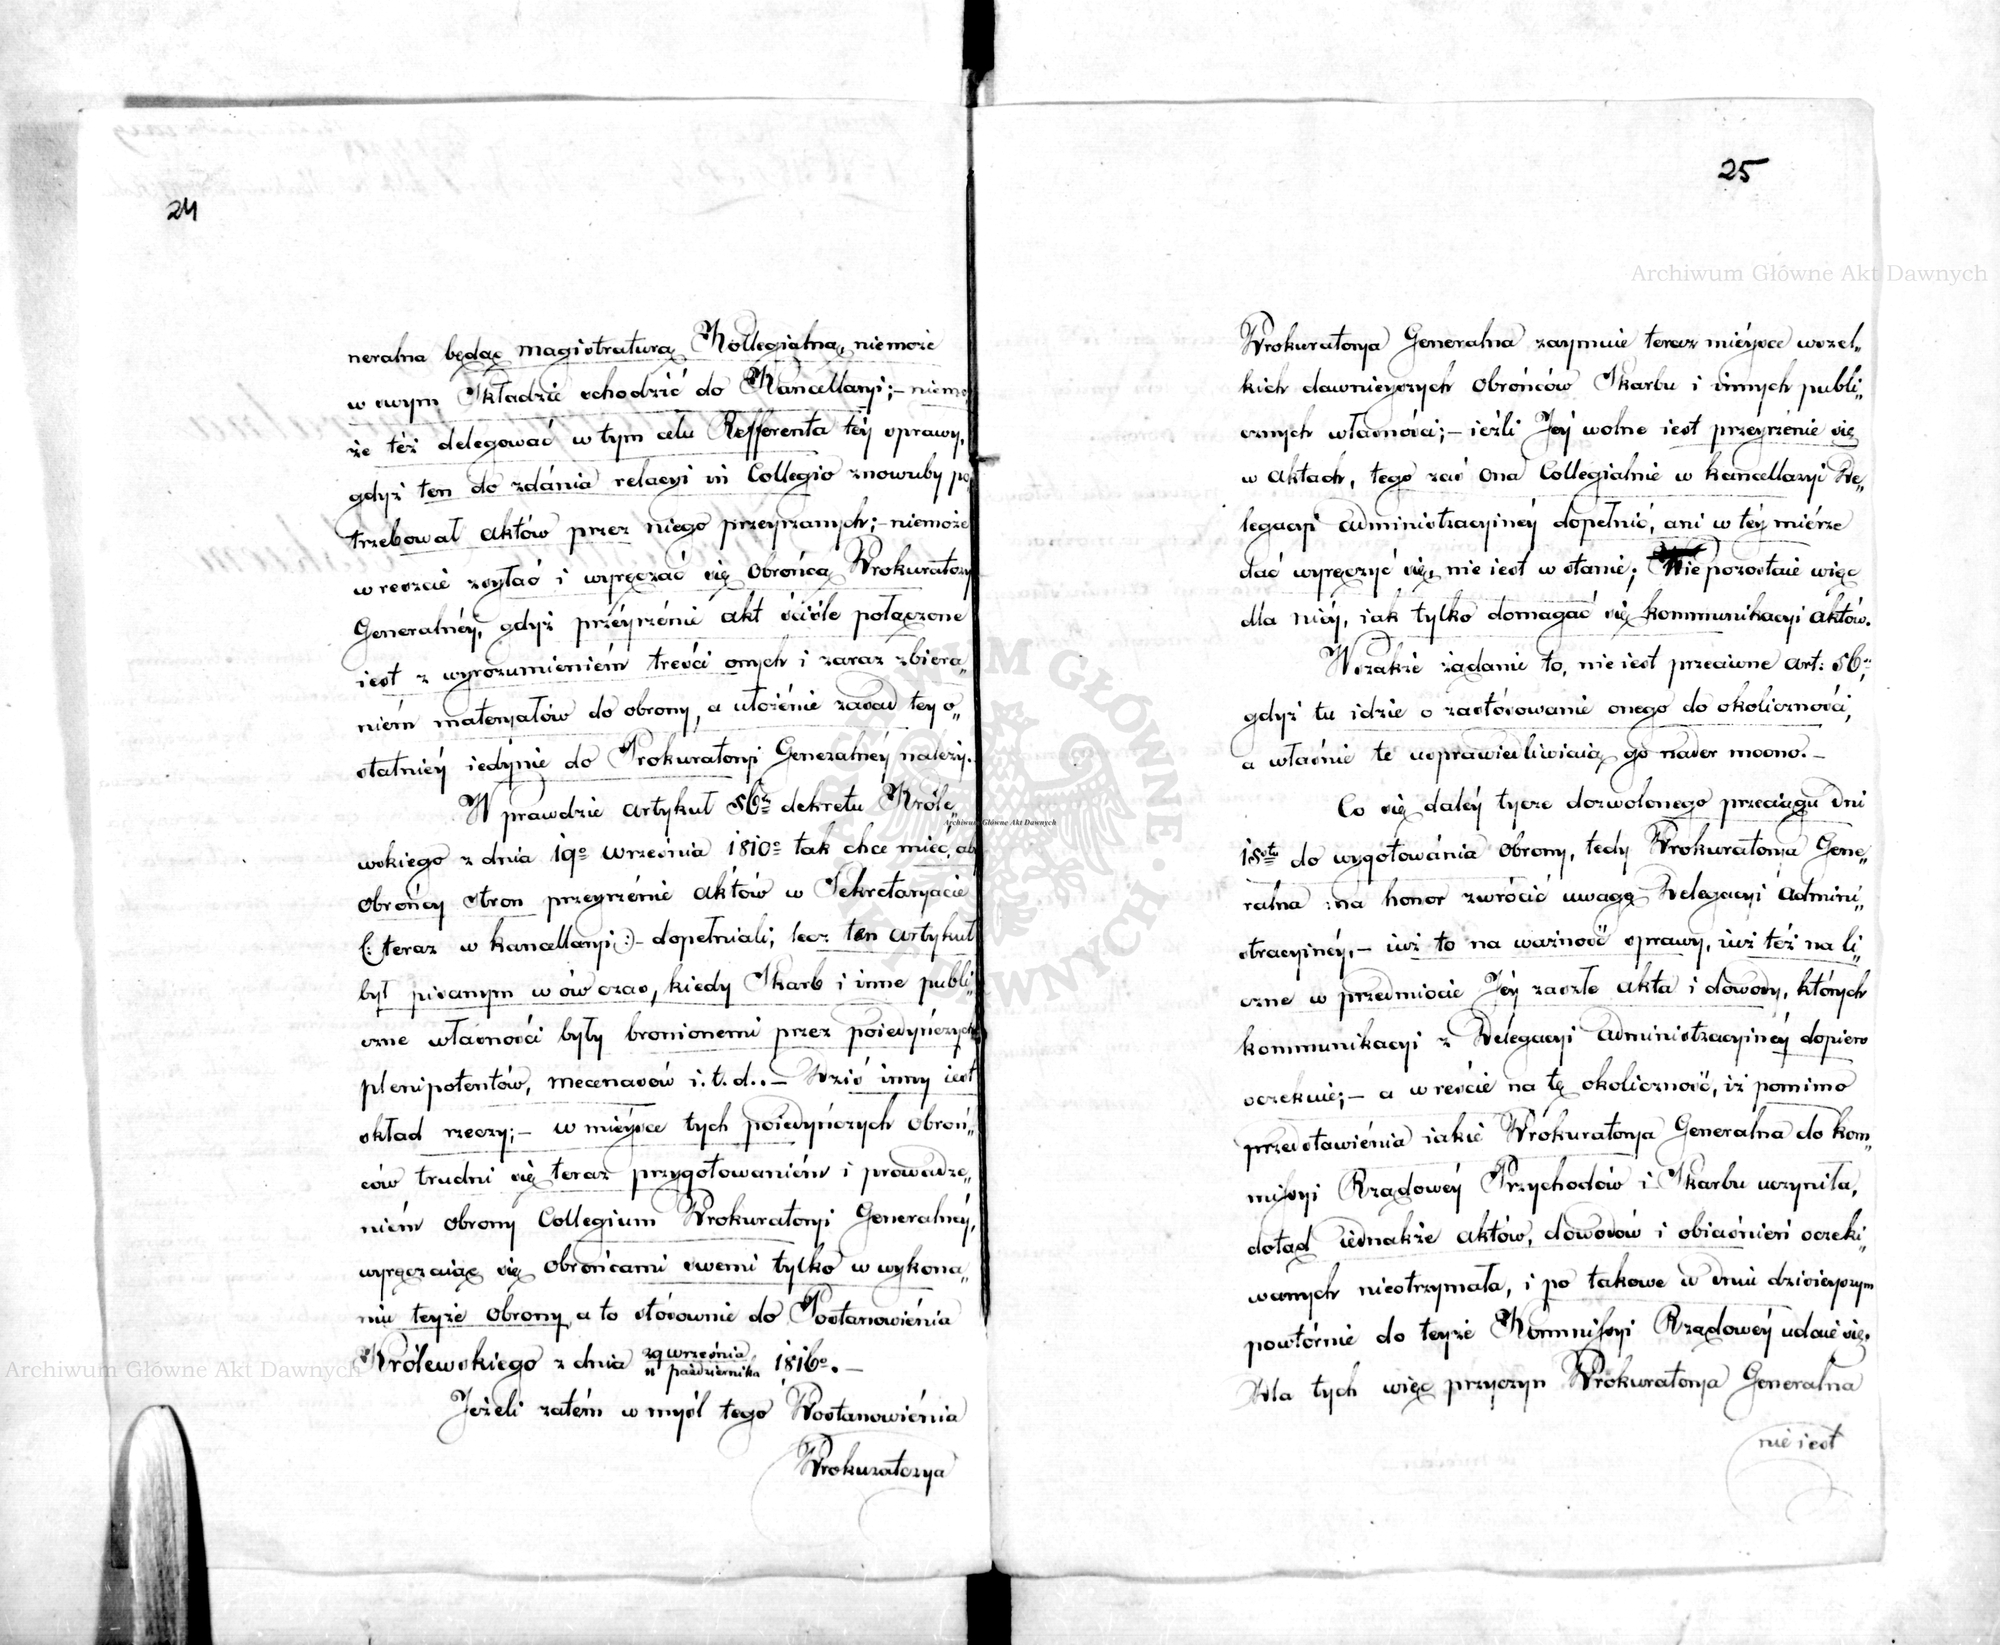 24
neralna będąc magistraturą Kollegialną, niemoże
w swym Składzie schodzić do Kancellaryi; – niemo
że też delegować w tym celu Refferenta téy sprawy,
gdyż ten do zdánia relacyi in Collegio znowuby po„
trzebował aktów przez niego przeyrzanych; – niemoże
wreszcie zsyłać i wyręczać się Obrońcą Prokuratoryi
Generalnéy, gdyż przéyrzénie akt ściśle połączone
iest z wyrozumieniém treści onych i zaraz zbiera„
niém materyałów do obrony, a ułożénie zasad tey o„
statniéy iedynie do Prokuratoryi Generalnéy należy.
Wprawdzie artykuł 56ty dekretu Króle„
wskiego z dnia 19o Września 1810o tak chce mieć, aby
obrońcy stron przeyrzénie aktów w Sekretaryacie
(: teraz w kancellaryi :) – dopełniali; lecz ten artykuł
był pisanym w ów czas, kiedy Skarb i inne publi„
czne własności były bronionemi przez poiedyńczych
plenipotentów, mecenasów i. t. d.. – Dziś inny iest
skład rzeczy; – w miéysce tych poiedyńczych obroń„
ców trudni się teraz przygotowaniém i prowadze„
niém obrony Collegium Prokuratoryi Generalnéy,
wyręczaiąc się obrońcami swemi tylko w wykona„
niu teyże obrony, a to stósownie do Postanowiénia
Królewskiego z dnia 29 września / 11 października 1816o. –
Jeżeli zatém w myśl tego Postanowiénia
Prokuratorya
25
Prokuratorya Generalna zaymuie teraz miéysce wszel„
kich dawnieyszych Obrońców Skarbu i innych publi„
cznych własności; – ieżli Jéy wolne iest przeyrzénie się
w aktach, tego zaś Ona Collegialnie w kancellaryi De„
legacyi administracyinéy dopełnić, ani w téy miérze
dać wyręczyć się, nie iest w stanie; Nie pozostaie więc
dla niéy, iak tylko domagać się kommunikacyi aktów.
Wszakże żądanie to, nie iest przeciwne art: 56mu,
gdyż tu idzie o zastósowanie onego do okoliczności,
a właśnie te usprawiedliwiaią go nader mocno. –
Co się daléy tycze dozwolonego przeciągu dni
15stu do wygotowánia Obrony, tedy Prokuratorya Gene„
ralna ma honor zwrócić uwagę Delegacyi Admini„
stracyinéy, – iuż to na ważność sprawy, iuż też na li„
czne w przedmiocie Jéy zaszłe akta i dowody, których
kommunikacyi z Delegacyi administracyinéy dopiero
oczekuie; – a wreście na tę okoliczność, iż pomimo
przedstawiénia iakie Prokuratorya Generalna do Kom„
missyi Rządowéy Przychodów i Skarbu uczyniła,
dotąd iednakże aktów, dowodów i obiaśnień oczeki„
wanych nieotrzymała, i po takowe w dniu dzisieyszym
powtórnie do teyże Kommissyi Rządowéy udaie się.
Dla tych więc przyczyn Prokuratorya Generalna
nie iest
Archiwum Główne Akt Dawnych
Archiwum Główne Akt Dawnych
Archiwum Główne Akt Dawnych
ARCHIWUM GŁÓWNE AKT DAWNYCH